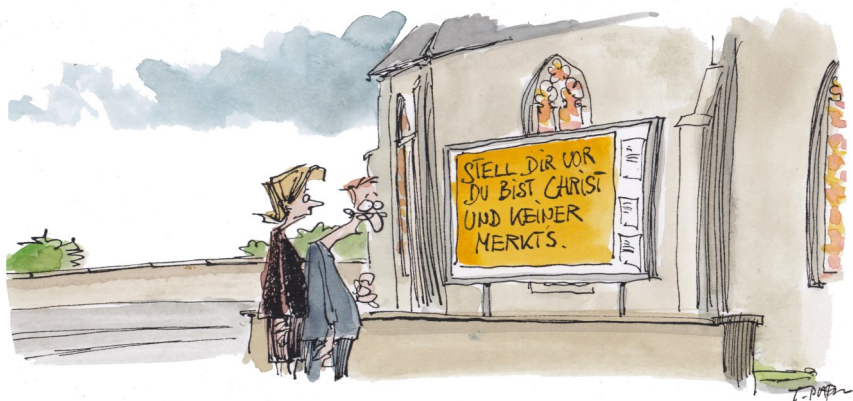 STELL DIR VOR
DU BIST CHRIST
UND KEINER
MERKT'S.